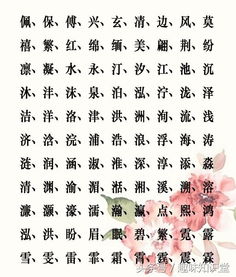 佩、保、傅、兴、玄、清、边、风、莫
禧、繁、红、绵、缅、美、翩、荆、纷
凛、凝、水、永、汀、汐、江、池、沉
沐、沣、沫、泉、泊、泓、泞、泷、泽
洁、洋、洛、津、洪、洲、洵、流、浅
济、浛、浣、浦、浩、浪、浮、海、涛
涟、润、涵、淑、淮、深、淳、添、淼
清、渊、渝、湄、湛、湘、溪、溯、溶
濂、灏、濠、濡、瀚、点、熙、鸿
泓、洪、盼、眉、繁、霓、露
雪、雯、雷、霏、霜、霞、霖、露